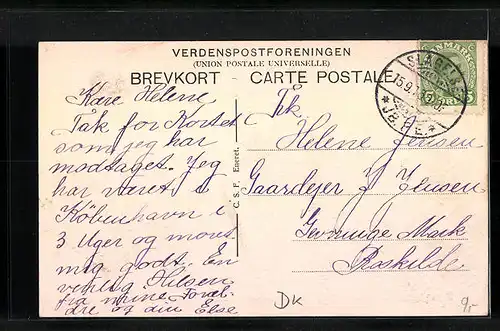 VERDENSPOSTFORENINGEN
(UNION POSTALE UNIVERSELLE)
BREVKORT - CARTE POSTALE
DANMARK
5
SLAGELSE
15.9.
*JB.P.E*
Kære Helene
Tak for Kortet
som jeg har
modtaget. Jeg
har været i
København i
3 Uger og moret
mig godt. En
venlig Hilsen
fra mine Foræl-
dre og din Else
C. S. F. Eneret.
Frk.
Helene Jensen
Gaardejer J Jensen
Gevninge Mark
Roskilde
DK
9,-